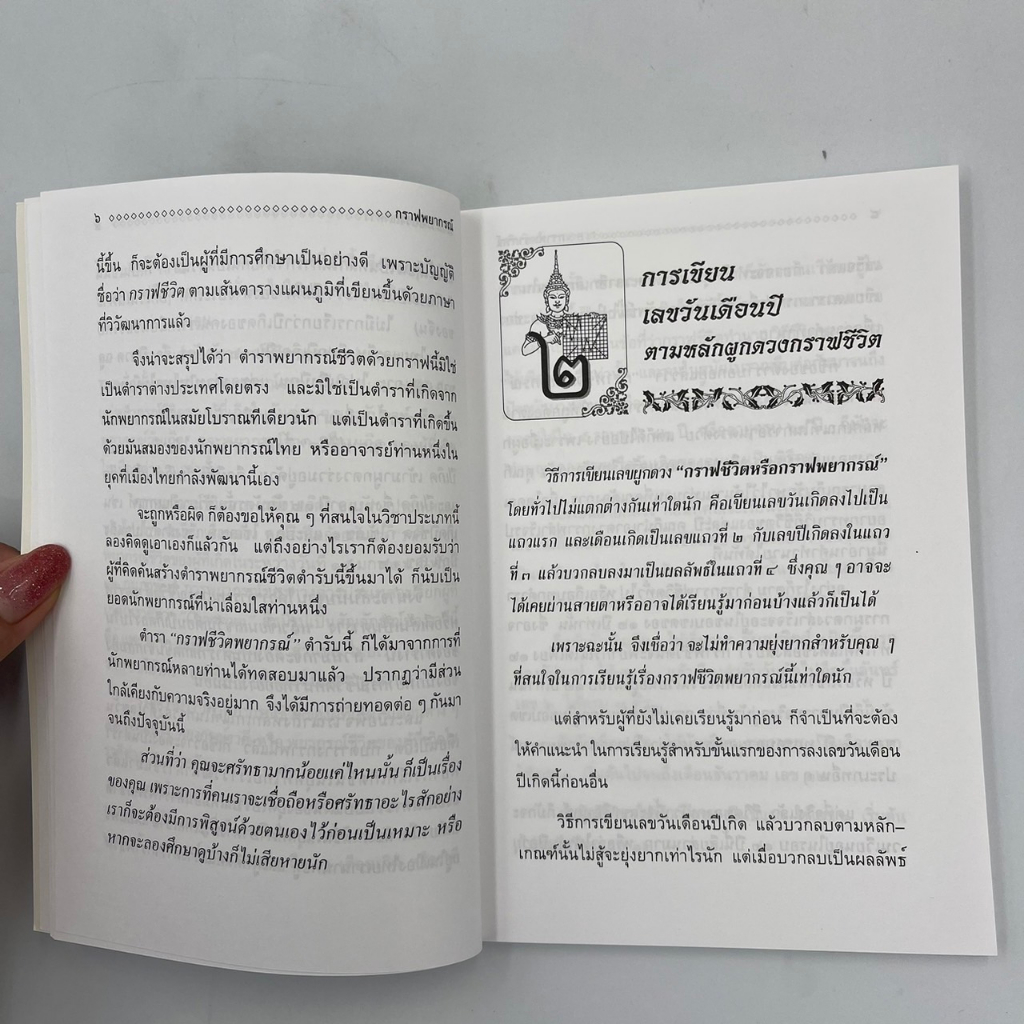 ๖ กราฟพยากรณ์
นี้ขึ้น ก็จะต้องเป็นผู้ที่มีการศึกษาเป็นอย่างดี เพราะบัญญัติ
ชื่อว่า กราฟชีวิต ตามเส้นตารางแผนภูมิที่เขียนขึ้นด้วยภาษา
ที่วิวัฒนาการแล้ว
จึงน่าจะสรุปได้ว่า ตำราพยากรณ์ชีวิตด้วยกราฟนี้มิใช่
เป็นตำราต่างประเทศโดยตรง และมิใช่เป็นตำราที่เกิดจาก
นักพยากรณ์ในสมัยโบราณทีเดียวนัก แต่เป็นตำราที่เกิดขึ้น
ด้วยมันสมองของนักพยากรณ์ไทย หรืออาจารย์ท่านหนึ่งใน
ยุคที่เมืองไทยกำลังพัฒนานี้เอง
จะถูกหรือผิด ก็ต้องขอให้คุณ ๆ ที่สนใจในวิชาประเภทนี้
ลองคิดดูเอาเองก็แล้วกัน แต่ถึงอย่างไรเราก็ต้องยอมรับว่า
ผู้ที่คิดค้นสร้างตำราพยากรณ์ชีวิตตำรับนี้ขึ้นมาได้ ก็นับเป็น
ยอดนักพยากรณ์ที่น่าเลื่อมใสท่านหนึ่ง
ตำรา “กราฟชีวิตพยากรณ์” ตำรับนี้ ก็ได้มาจากการที่
นักพยากรณ์หลายท่านได้ทดสอบมาแล้ว ปรากฏว่ามีส่วน
ใกล้เคียงกับความจริงอยู่มาก จึงได้มีการถ่ายทอดต่อ ๆ กันมา
จนถึงปัจจุบันนี้
ส่วนที่ว่า คุณจะศรัทธามากน้อยแค่ไหนนั้น ก็เป็นเรื่อง
ของคุณ เพราะการที่คนเราจะเชื่อถือหรือศรัทธาอะไรสักอย่าง
เราก็จะต้องมีการพิสูจน์ด้วยตนเองไว้ก่อนเป็นเหมาะ หรือ
หากจะลองศึกษาดูบ้างก็ไม่เสียหายนัก
๒
การเขียน
เลขวันเดือนปี
ตามหลักผูกดวงกราฟชีวิต
วิธีการเขียนเลขผูกดวง “กราฟชีวิตหรือกราฟพยากรณ์”
โดยทั่วไปไม่แตกต่างกันเท่าใดนัก คือเขียนเลขวันเกิดลงไปเป็น
แถวแรก และเดือนเกิดเป็นเลขแถวที่ ๒ กับเลขปีเกิดลงในแถว
ที่ ๓ แล้วบวกลบลงมาเป็นผลลัพธ์ในแถวที่ ๔ ซึ่งคุณ ๆ อาจจะ
ได้เคยผ่านสายตาหรืออาจได้เรียนรู้มาก่อนบ้างแล้วก็เป็นได้
เพราะฉะนั้น จึงเชื่อว่า จะไม่ทำความยุ่งยากสำหรับคุณ ๆ
ที่สนใจในการเรียนรู้เรื่องกราฟชีวิตพยากรณ์นี้เท่าใดนัก
แต่สำหรับผู้ที่ยังไม่เคยเรียนรู้มาก่อน ก็จำเป็นที่จะต้อง
ให้คำแนะนำ ในการเรียนรู้สำหรับขั้นแรกของการลงเลขวันเดือน
ปีเกิดนี้ก่อนอื่น
วิธีการเขียนเลขวันเดือนปีเกิด แล้วบวกลบตามหลัก–
เกณฑ์นั้นไม่สู้จะยุ่งยากเท่าไรนัก แต่เมื่อบวกลบเป็นผลลัพธ์